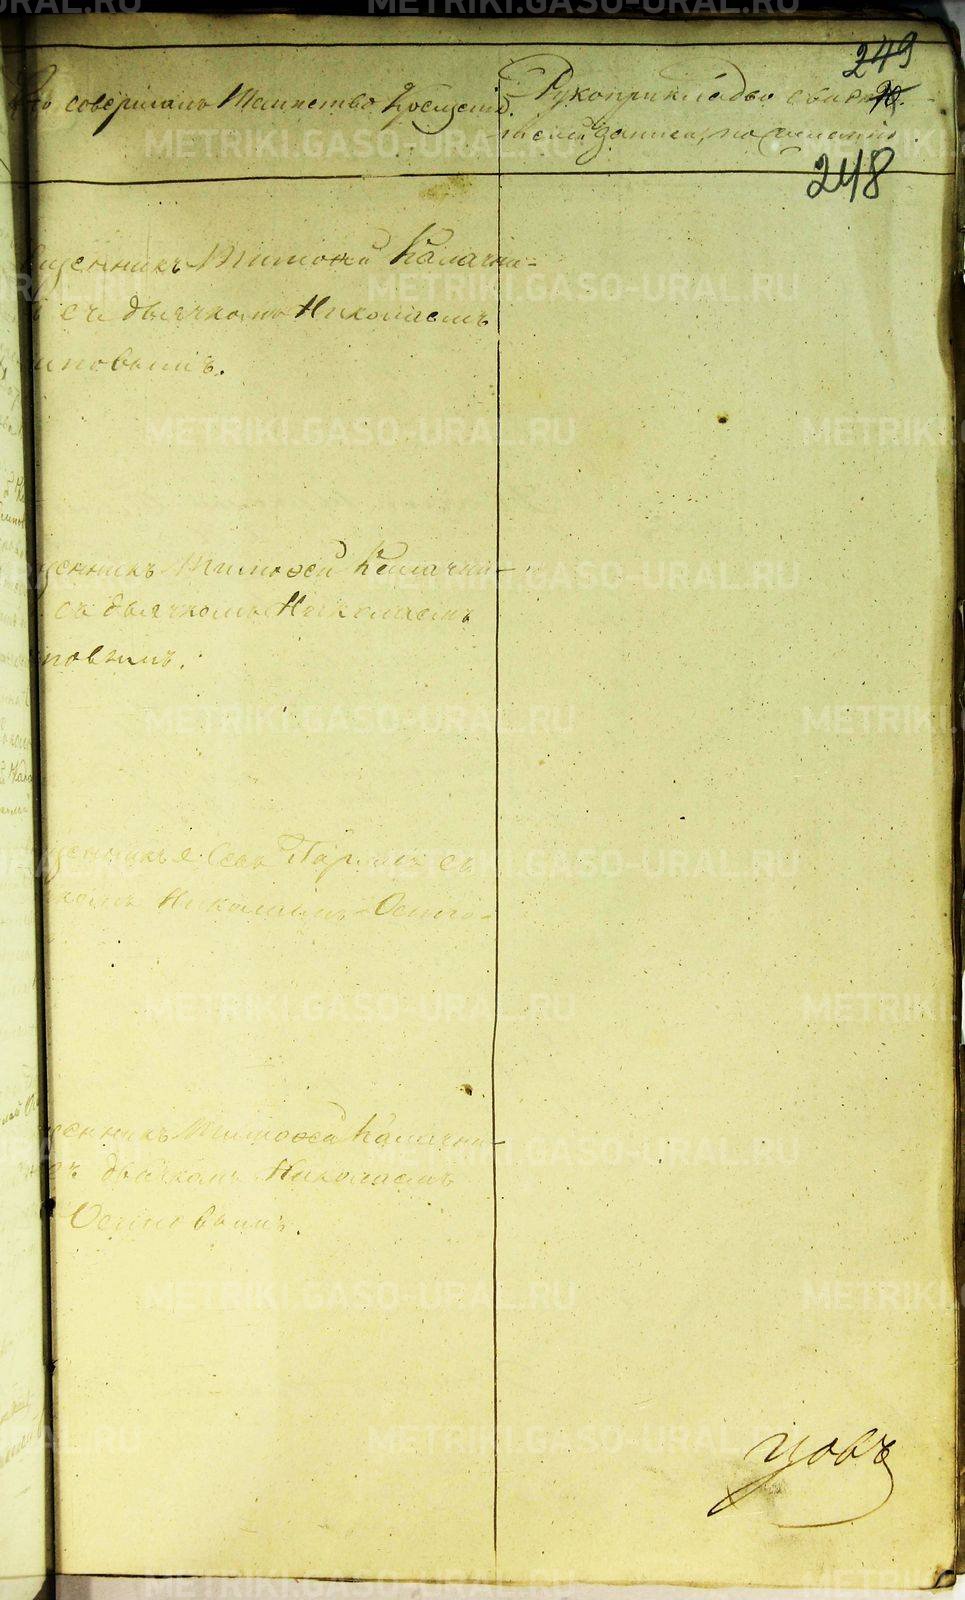 249
90.
Кто совершалъ Таинство Крещенія.
Рукоприкладство свидѣ-
записи, по желанію.
248
щенникъ Тимоѳей Калачни-
съ дьячкомъ Николаемъ
иповымъ.
щенникъ Тимоѳей Калачни-
съ дьячкомъ Николаемъ
повымъ.
щенникъ съ
комъ Николаемъ Осипо-
щенникъ Тимоѳей Калачни-
съ дьячкомъ Николаемъ
Осиповымъ.
цовъ
METRIKI.GASO-URAL.RU